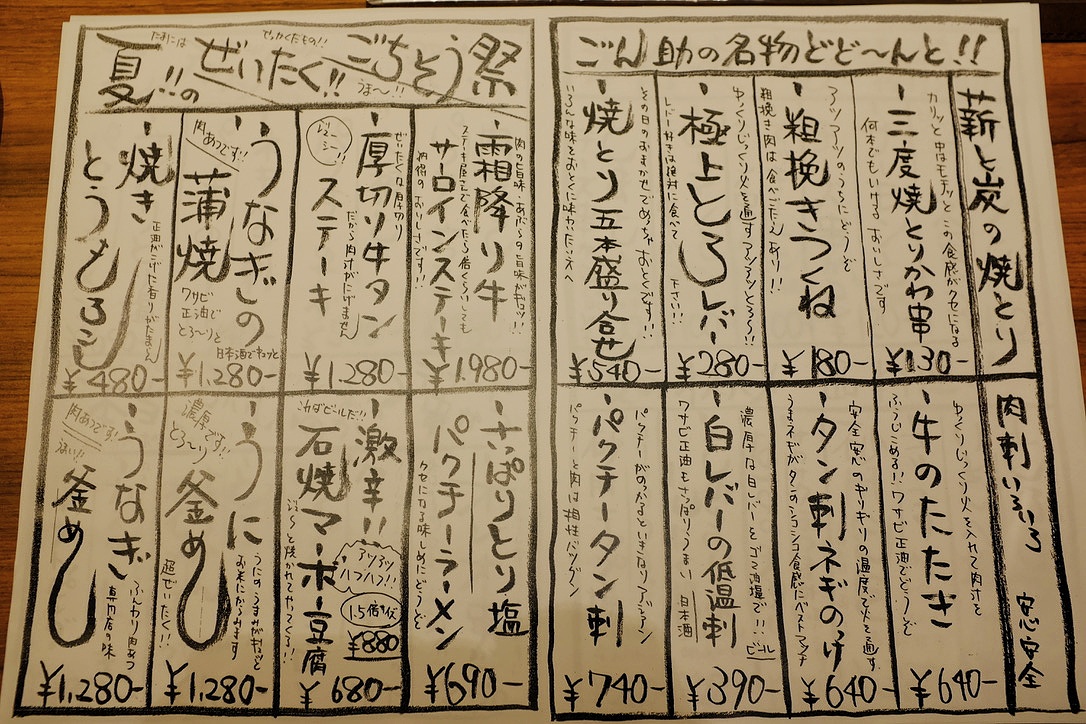 ごん助の名物どど〜んと!!
薪と炭の焼とり
三度焼とりかわ串
カリッと中はモチッとこの食感がクセになる
何本でもいけるおいしさです
¥130-
粗挽きつくね
アツアツのうちにどうぞ
粗挽き肉は食べごたえあり!!
¥180-
極上とろレバー
じっくり火を通す
レバー好きは絶対に食べて下さい!!
¥280-
焼とり五本盛り合せ
その日のおまかせでめちゃおとくです!!
いろんな味をおとくに味わいたい方へ
¥540-
肉刺いろいろ
安心安全
牛のたたき
ゆっくりじっくり火を入れて肉汁を
ふうじこめる!!ワサビ正油でどうぞ
¥640-
タン刺ネギのっけ
安全安心のギリギリの温度で火を通す
うまネギがタンのコシコシ食感にベストマッチ
¥640-
白レバーの低温刺
濃厚な白レバーをゴマ油塩で!!ビール
ワサビ正油もさっぱりうまい 日本酒
¥390-
パクチータン刺
パクチーと肉は相性バツグン
¥740-
夏!!の
たまには
ぜいたく!!
せっかくだもの!!
ごちそう祭
うま〜!!
霜降り牛
サーロインステーキ
肉の旨味・あぶらの旨味がギュッ!!
¥1,980-
厚切り牛タン
ステーキ
ジューシー!!
ぜいたくな厚切り
だから肉汁がにげません
¥1,280-
うなぎの
蒲焼
肉あつです!!
ワサビ
正油で
とろ〜りと
日本酒でキュッと
¥1,280-
焼き
とうもろこし
正油がこげた香りがたま〜ん
¥480-
さっぱりとり塩
パクチーラーメン
クセになる味 しめにどうぞ
¥690-
激辛!!
石焼マーボ豆腐
アツアツ
ハフハフ!!
1.5倍
¥880
¥680-
うに
釜めし
濃厚です!!
とろ〜り
うにのうまみがギュッと
お米にからみます
超ぜいたく!!
¥1,280-
うなぎ
釜めし
肉あつです!!
うまい!!
ふんわり肉あつ
専門店の味
¥1,280-